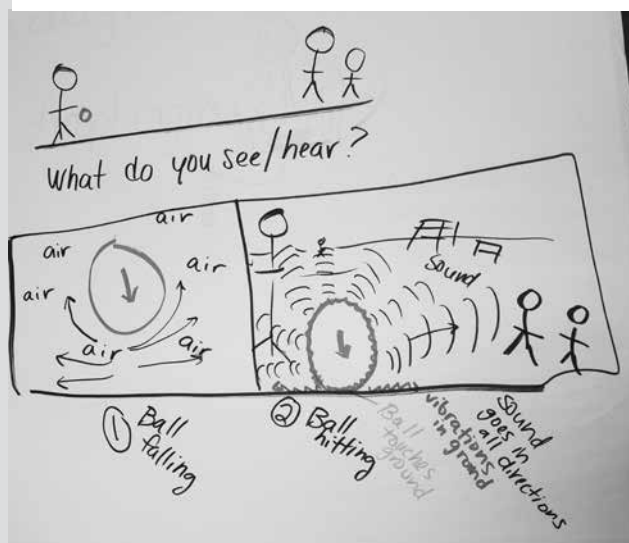 What do you see/hear?
air
air
air
air
air
air
sound
① Ball
falling
② Ball
hitting
Ball
touches
ground
vibrations
in ground
sound
goes in
all directions